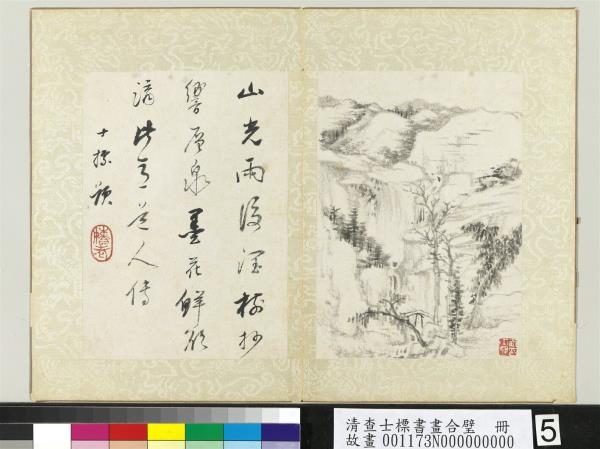 山光雨後樹杪
響層泉墨花鮮欲
滴此意人傳
士標題
清查士標書畫合璧 冊
故畫 001173N000000000
5